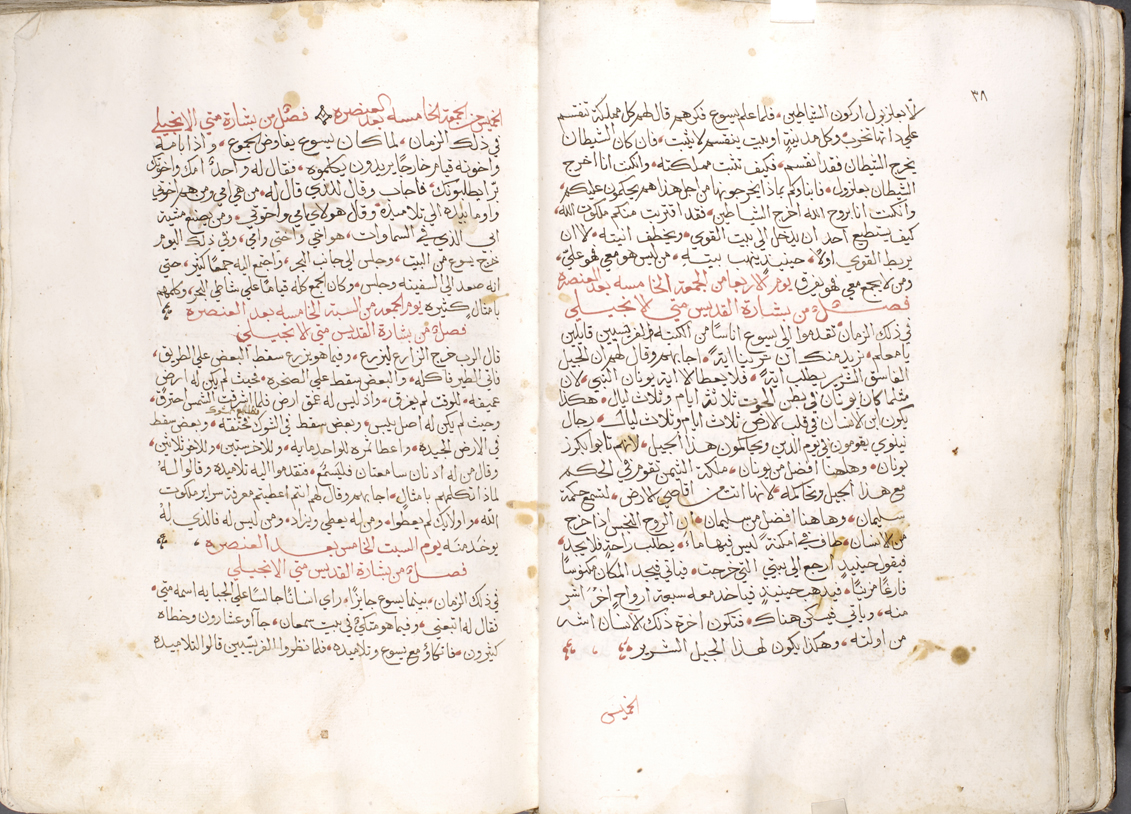 ٣٨
لا بباعلزبول اركون الشياطين • فلما علم يسوع فكرهم قال لهم كل مملكة تنقسم
على ذاتها تخرب وكل مدينةٍ او بيت ينقسم لا يثبت • فان كان الشيطان
يخرج الشيطان فقد انقسم • فكيف تثبت مملكته • وانكنت انا اخرج
الشيطان بباعلزبول • فابناوكم بماذا يخرجونها من اجل هذا هم يحكمون عليكم •
وانكنت انا بروح الله اخرج الشياطين • فقد اقتربت منكم ملكوت الله •
كيف يستطيع احد ان يدخل الى بيت القوي • ويخطف انيته • الا ان
يربط القوي اولاً • حينيذٍ ينهب بيته • من ليس هو معي فهو عليّ •
ومن لا يجمع معي فهو يفرق يوم الاربعا من الجمعة الخامسه بعد العنصرة
فصل من بشارة القديس متي الانجيلي
في ذلك الزمان تقدموا الى يسوع اناساً من الكتبه والفريسيين قايلين
يا معلم • نريد منك ان ترينا اية • اجابهم وقال لهم ان الجيل
الفاسق الشرير يطلب اية • فلا يعطا الا اية يونان النبي • لان
مثلما كان يونان في بطن الحوت ثلاثة ايام وثلاث ليال • هكذا
يكون ابن الانسان في قلب الارض ثلاث ايام وثلاث ليالٍ • رجال
نينوي يقومون في يوم الدين ويحاكمون هذا الجيل • لانهم تابوا بكرز
يونان • وهاهنا افضل من يونان • ملكة التيمن تقوم في الحكم
مع هذا الجيل وتحاكمه • لانها اتت من اقاصي الارض • لتسمع حكمة
سليمان • وهاهنا افضل من سليمان • ان الروح النجس اذا خرج
من الانسان • طاف في امكنة ليس فيها ماء • يطلب راحة فلا يجد •
فيقول حينيذٍ ارجع الى بيتي التي خرجت • فياتي فيجد المكان مكنوساً
فارغاً مزيناً • فيذهب حينيذٍ فياخذ معه سبعة ارواح اخر اشر
منه • وياتي فيسكن هناك • فتكون اخرة ذلك الانسان اشر
من اولته • وهكذا يكون لهذا الجيل الشرير
الخميس
الخميس من الجمعة الخامسه بعد العنصره فصل من بشارة متي الانجيلي
في ذلك الزمان • لما كان يسوع يفاوض الجموع • واذا بامه
واخوته قيام خارجاً يريدون يكلموه • فقال له واحداً امك واخوتك
برا يطلبونك • فاجاب وقال للذي قال له • من هي امي ومن هم اخوتي
واوما بيده الى تلاميذه • وقال هولاي امي واخوتي • ومن يصنع مشية
ابي الذي في السماوات • هو اخي واختي وامي • وفي ذلك اليوم
خرج يسوع من البيت • وجلس الى جانب البحر • واجتمع اليه جمعاً كثير • حتى
انه صعد الى السفينه وجلس • وكان الجمع كله قياماً على شاطي البحر • وكلمهم
بامثال كثيره يوم الجمعه من السبة الخامسه بعد العنصره
فصل من بشارة القديس متي الانجيلي
قال الرب خرج الزارع ليزرع • وفيما هو يزرع سقط البعض على الطريق •
فاتى الطير فاكله • والبعض سقط على الصخره • بحيث لم يكن له ارض
عميقه • للوقت لم يعرق • واذ ليس له عمق ارض فلما اشرقت الشمس احترق •
وحيث لم يكن له اصل يبس • وبعض سقط في الشوك فخنقه • وبعض سقط
في الارض الجيده • واعطا ثمره للواحد مايه • وللاخر ستين • وللاخر ثلاثين •
وقال من له اذنان سامعتان فليسمع • فتقدموا اليه تلاميذه وقالوا له
لماذا تكلمهم بامثال • اجابهم وقال لهم انتم اعطيتم معرفة سراير ملكوت
الله • واولايك لم يعطوا • ومن له يعطي ويزاد • ومن ليس له فالذي له
يوخذ منه يوم السبت الخامس بعد العنصره
فصل من بشارة القديس متي الانجيلي
في ذلك الزمان • بينما يسوع جايزاً • راى انساناً جالساً على الجبايه اسمه متي •
فقال له اتبعني • وفيما هو متكي في بيت سمعان • جاا وعشارون وخطاه
كثيرون • فاتكاو مع يسوع وتلاميذه • فلما نظروا الفريسيين قالوا لتلاميذه